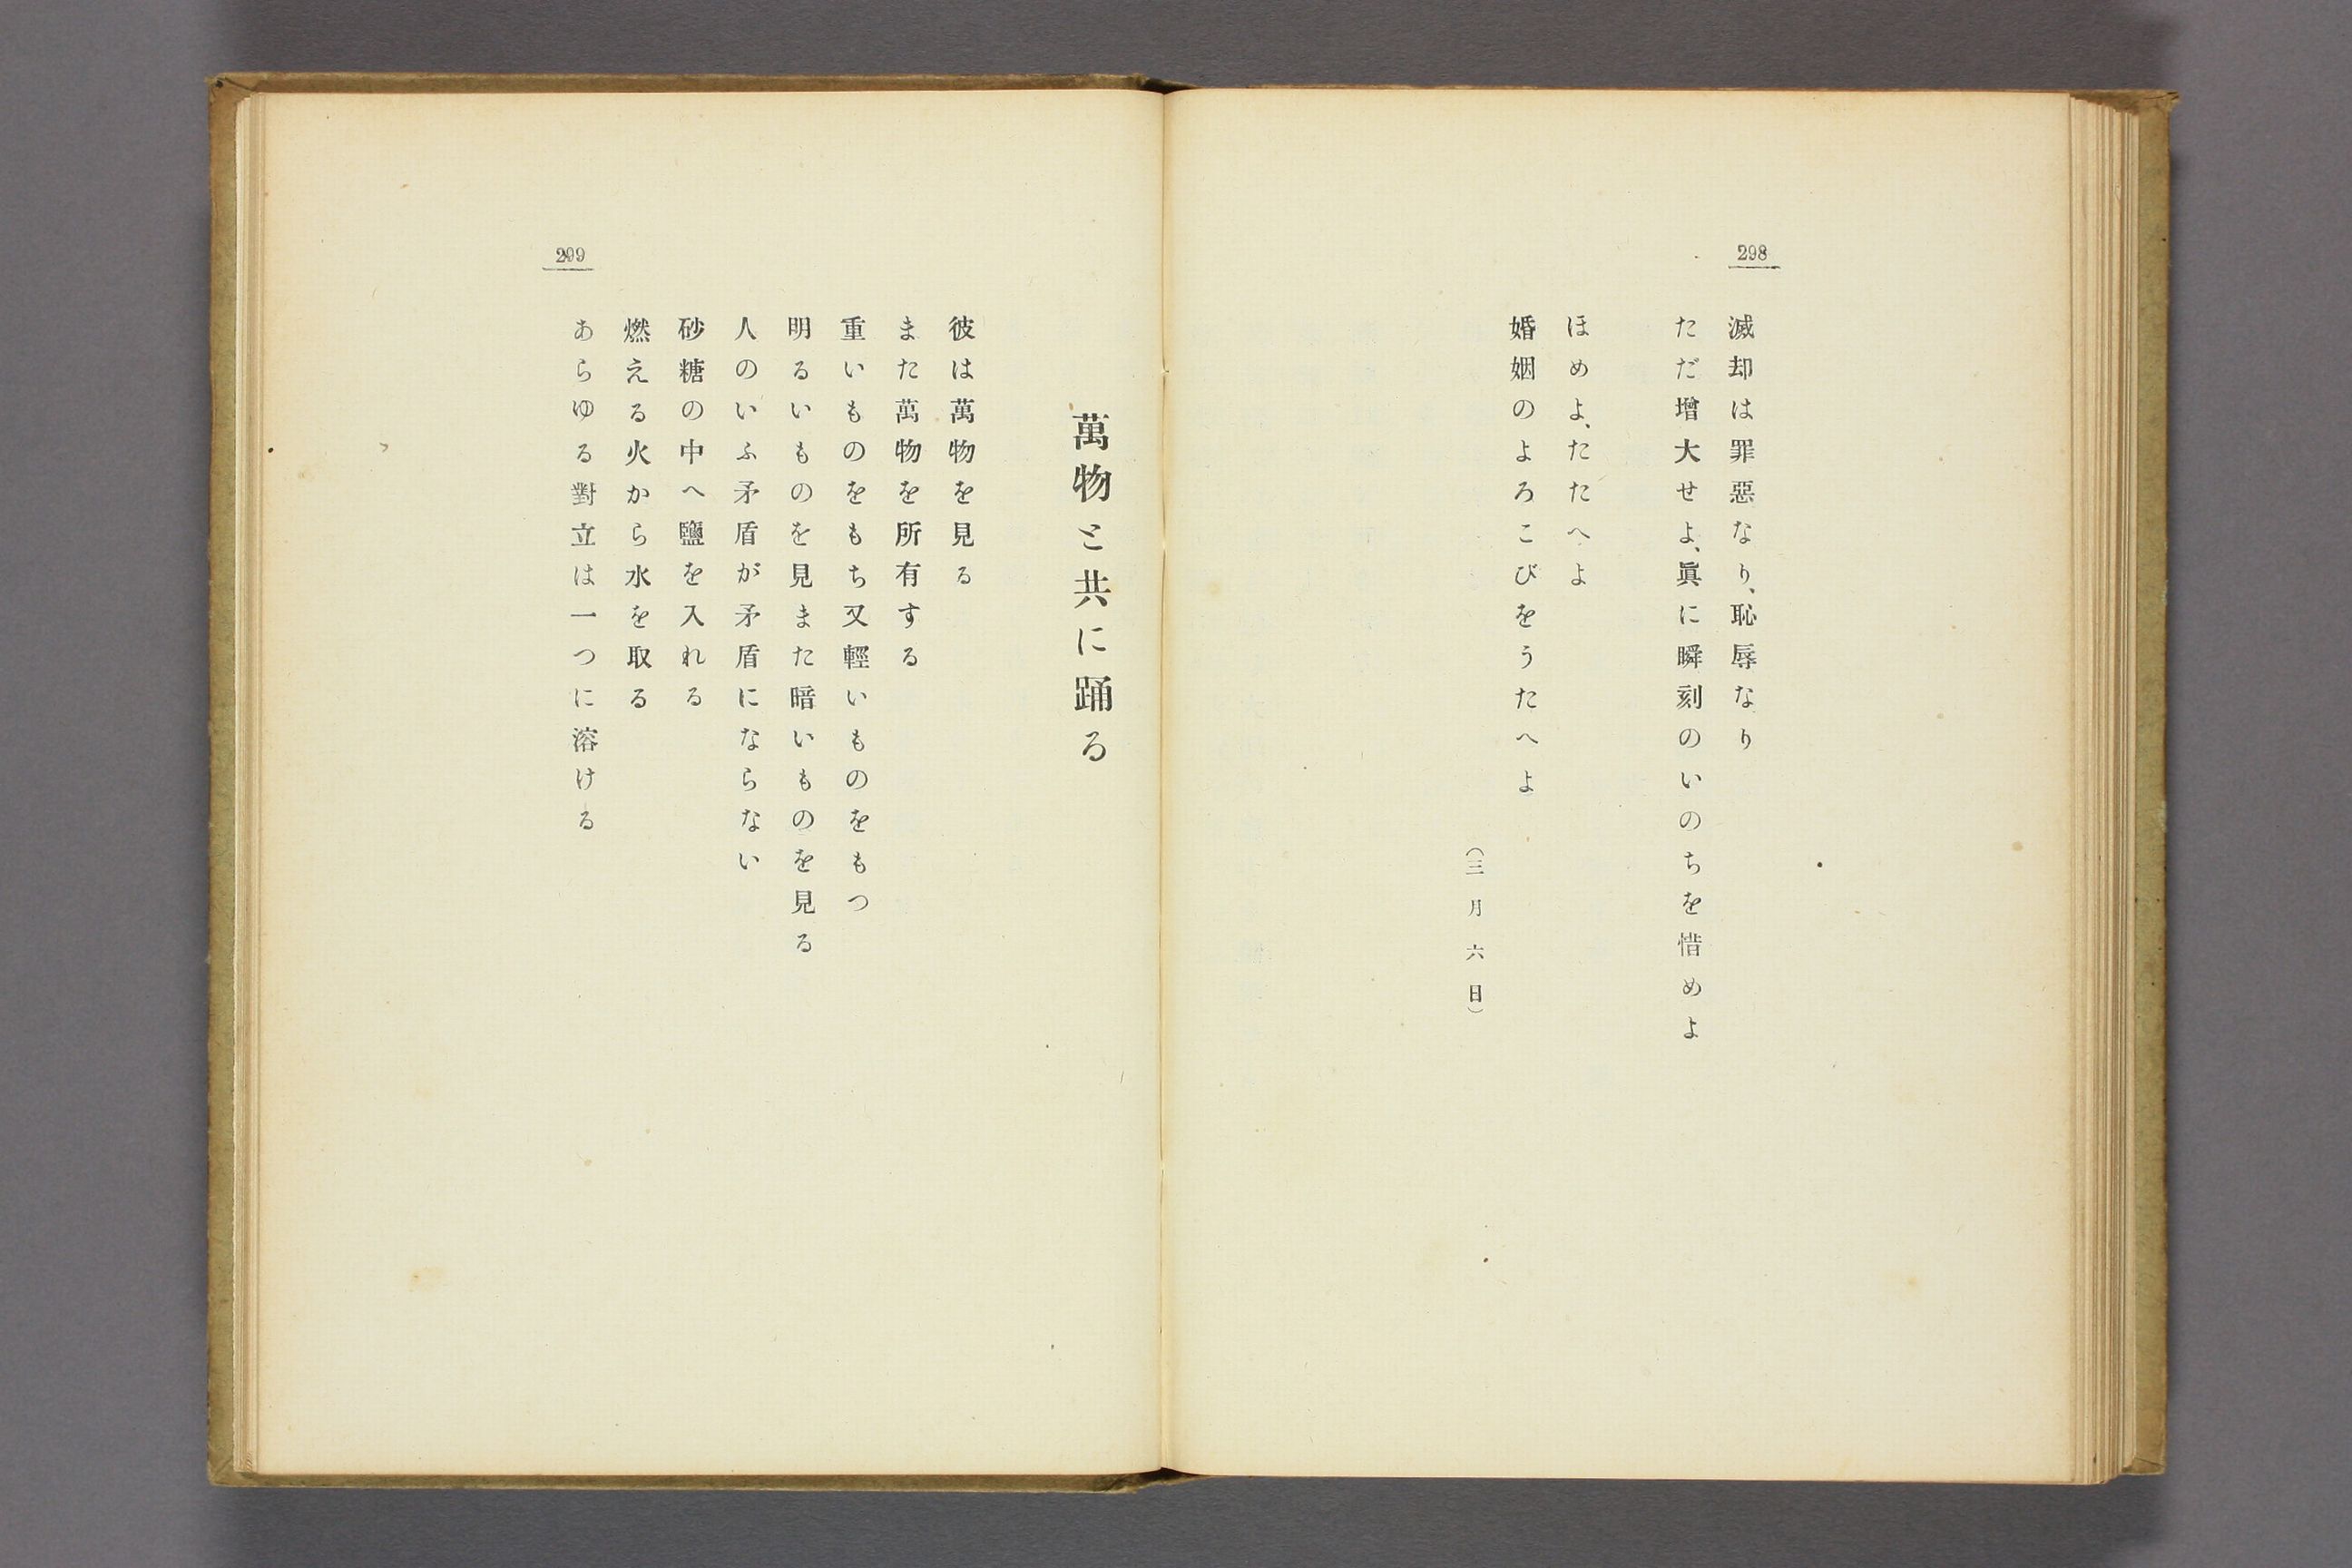 298
滅却は罪惡なり、恥辱なり
ただ增大せよ、眞に瞬刻のいのちを惜めよ
ほめよ、たたへよ
婚姻のよろこびをうたへよ
（三月六日）
299
萬物と共に踊る
彼は萬物を見る
また萬物を所有する
重いものをもち又輕いものをもつ
明るいものを見また暗いものを見る
人のいふ矛盾が矛盾にならない
砂糖の中へ鹽を入れる
燃える火から水を取る
あらゆる對立は一つに溶ける